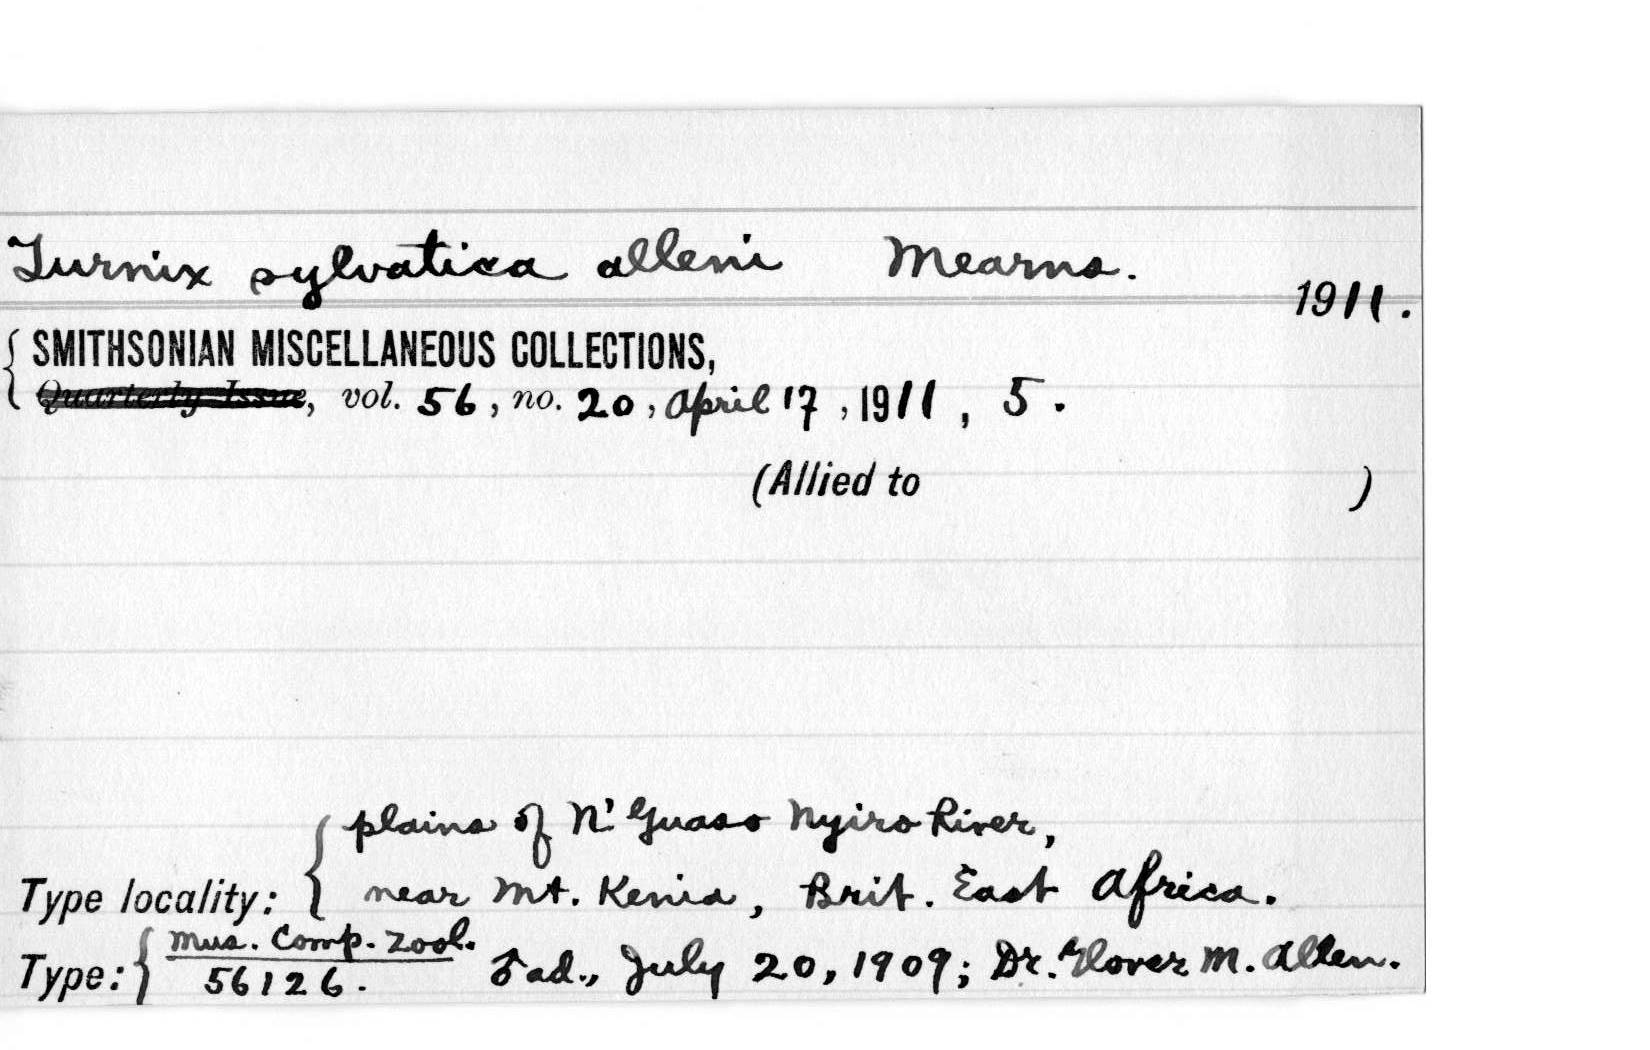 Turnix sylvatica alleni Mearns.
1911.
SMITHSONIAN MISCELLANEOUS COLLECTIONS,
Quarterly Issue, vol. 56, no. 20, April 17, 1911, 5.
(Allied to )
plains of N' Guaso Nyiro River,
Type locality: near Mt. Kenia, Brit. East Africa.
Mus. Comp. Zool.
Type: 56126. ♂ ad., July 20, 1909; Dr. Glover M. Allen.